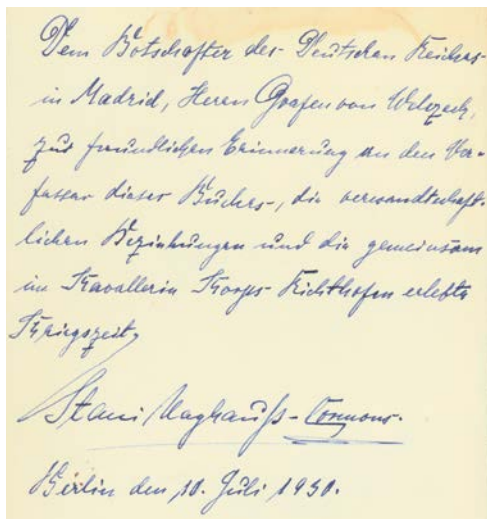 Dem Botschafter des Deutschen Reiches
in Madrid, Herrn Grafen von Welczeck,
zur freundlichen Erinnerung an den Ver-
fasser dieses Buches, die verwandtschaft-
lichen Beziehungen und die gemeinsam
im Kavallerie Korps Richthofen erlebte
Kriegszeit,
Berlin den 10. Juli 1930.